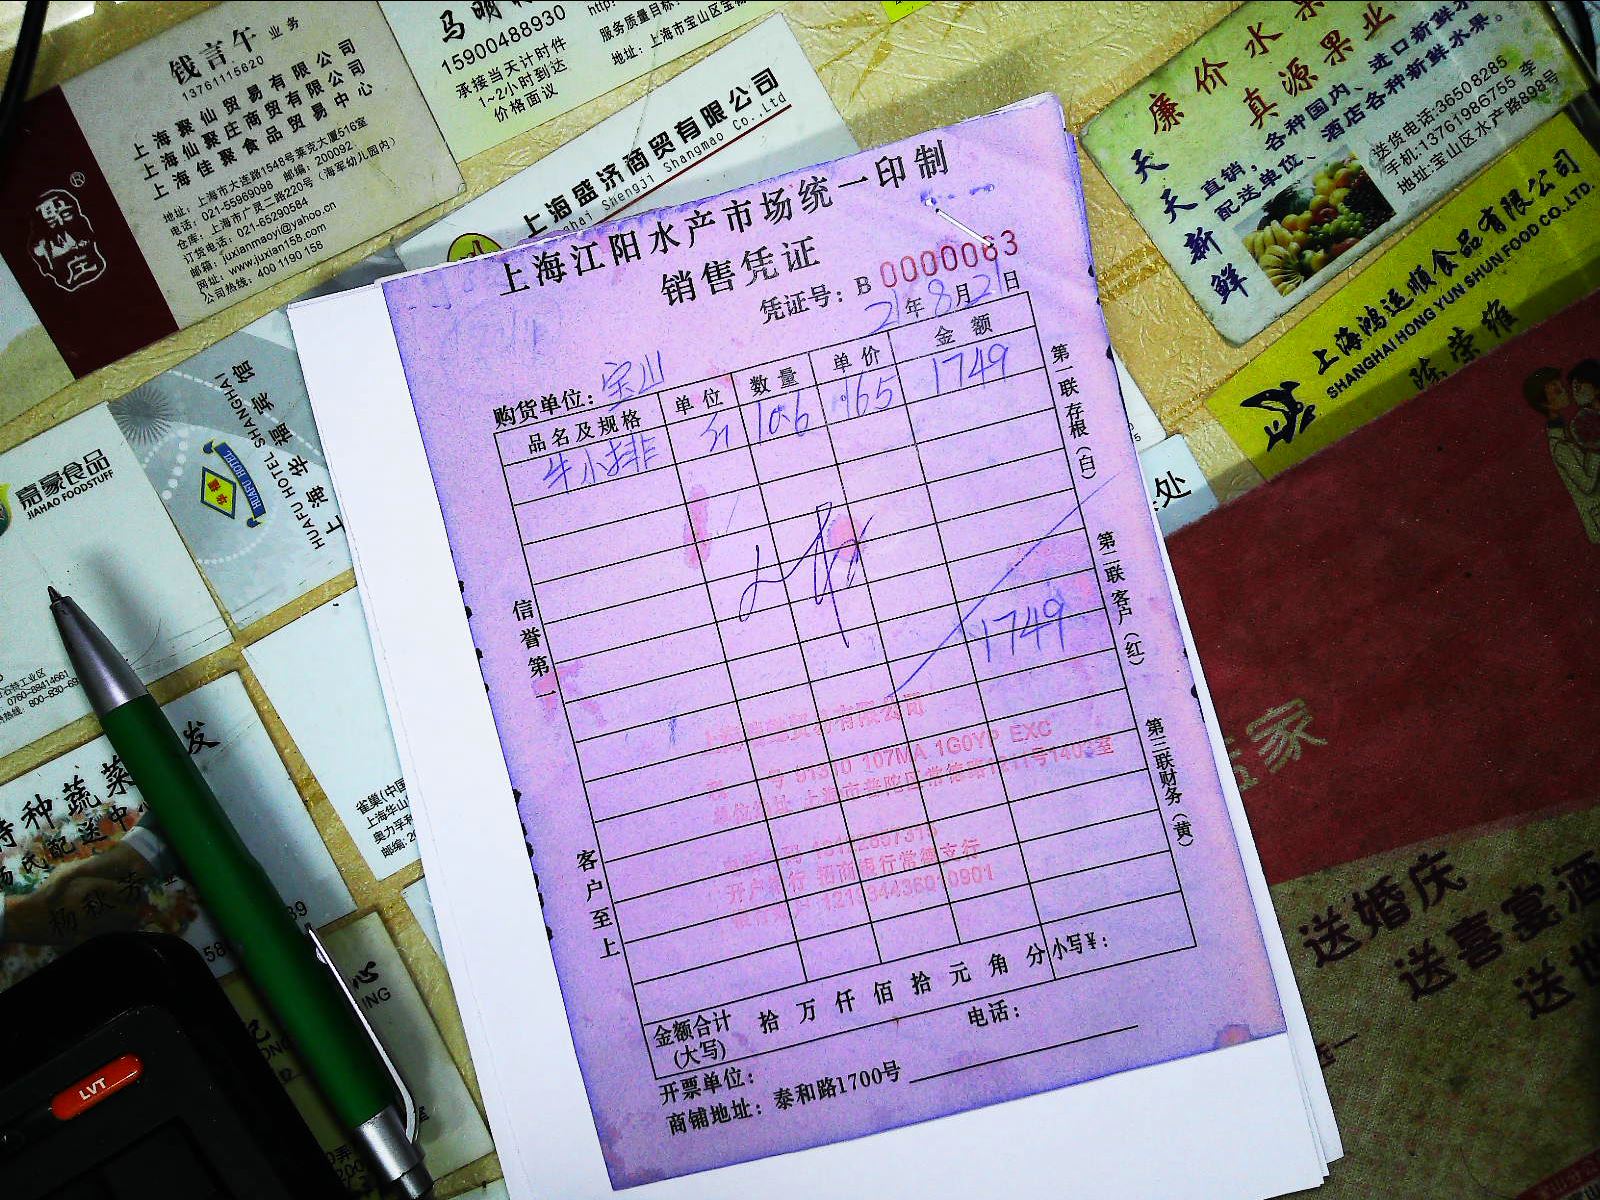 钱言午 业务
13761115620
上海聚仙贸易有限公司
上海仙聚庄商贸有限公司
上海佳聚食品贸易中心
地址：上海市大连路1548号莱克大厦516室
电话：021-55969098 邮编：200092
仓库：上海市广灵二路220号（海军幼儿园内）
订货电话：021-65290584
邮箱：juxianmaoyi@yahoo.cn
网址：www.juxian158.com
公司热线：400 1190 158
聚仙庄
®
15900488930
承接当天计时件
1~2小时到达
价格面议
http:
服务质量目标：
地址：上海市宝山区宝
上海盛济商贸有限公司
Shanghai Shengji Shangmao Co.,Ltd
廉价水果
真源果业
天天新鲜
直销，各种国内、进口新鲜水
配送单位、酒店各种新鲜水果。
送货电话:36508285
手机:13761986755 李
地址:宝山区水产路898号
上海鸿运顺食品有限公司
SHANGHAI HONG YUN SHUN FOOD CO.,LTD.
陈荣维
上海江阳水产市场统一印制
销售凭证
凭证号：B 0000063
21年8月21日
购货单位：宝山
品名及规格 单位 数量 单价 金额
牛小排 10.6 165 1749
1749
信誉第一
客户至上
第一联存根（白）
第二联客户（红）
第三联财务（黄）
贸易有限公司
107MA 1G0YP EXC
上海市普陀区常德路1211号140
开户银行 招商银行常德支行
金额合计(大写) 拾 万 仟 佰 拾 元 角 分 小写¥：
开票单位： 电话：
商铺地址：泰和路1700号
嘉豪食品
JIAHAO FOODSTUFF
HUAFU HOTEL
HUAFU HOTEL SHANGHAI
上海华福宾馆
0760-88414661
种蔬菜
配送中
杨秋芳
发
雀巢(中国
上海华山
奥力孚利
邮编:20
处
家
送婚庆
送喜宴酒
送世
LVT